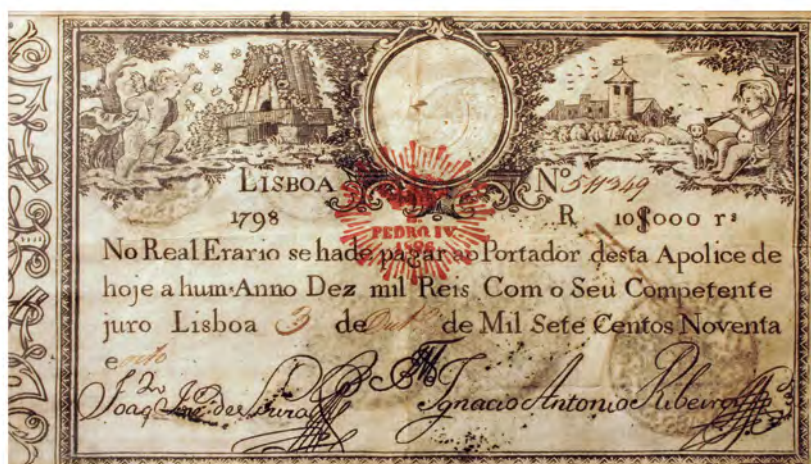 LISBOA Nº 
1798 R 10$000 rs
PEDRO IV.
1826
No Real Erario se hade pagar ao Portador desta Apolice de
hoje a hum Anno Dez mil Reis Com o Seu Competente
juro Lisboa 3 de de Mil Sete Centos Noventa
e outo
Ignacio Antonio Ribeiro